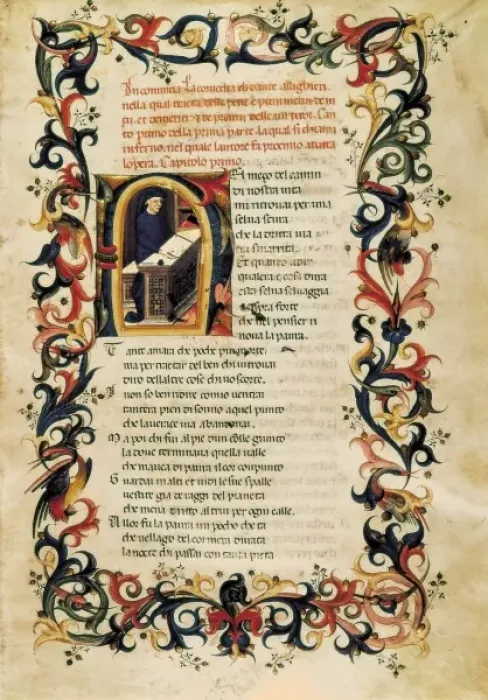 In comincia la comedia di dante allighieri
nella qual tracta delle pene e punimenti de ui
tii et demeriti et premii delle uirtu. Can
to primo della prima parte la qual si chiama
inferno. nel quale lautore fa prohemio atutta
lopera. Capitolo primo.
El mego del camin
di nostra uita
mi ritrouai per una
selua scura
che la dritta uia
era smarrita
Et quanto adir
qualera e cosa dura
esta selua seluaggia
aspra forte
che nel pensier ri
noua la paura.
Tante amara che pocho piu morte.
ma per tractar del ben chi uitrouai
diro dellaltre cose chi uo scorte.
I non so ben ridire comio uentrai
tantera pien di sonno aquel punto
che lauerace uia abandonai.
Ma poi chi fui al pie dun colle giunto
la doue terminaua quella ualle
che mauea di paura il cor compunto
Guardai inalti et uidi le sue spalle
uestite gia de raggi del pianeta
che mena dritto altrui per ogni calle.
Allor fu la paura un pocho cheta
che nellago del cor mera durata
la nocte chi passai con tanta pieta